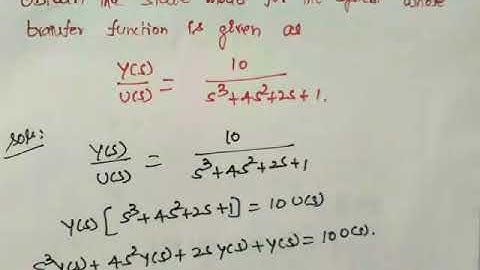 Obtain the state model for the system whose
transfer function is given as
Y(s)/U(s) = 10/(s³+4s²+2s+1.
Soln:
Y(s)/U(s) = 10/(s³+4s²+2s+1
Y(s)[s³+4s²+2s+1] = 10U(s)
s³Y(s)+4s²Y(s)+2sY(s)+Y(s)=10U(s).